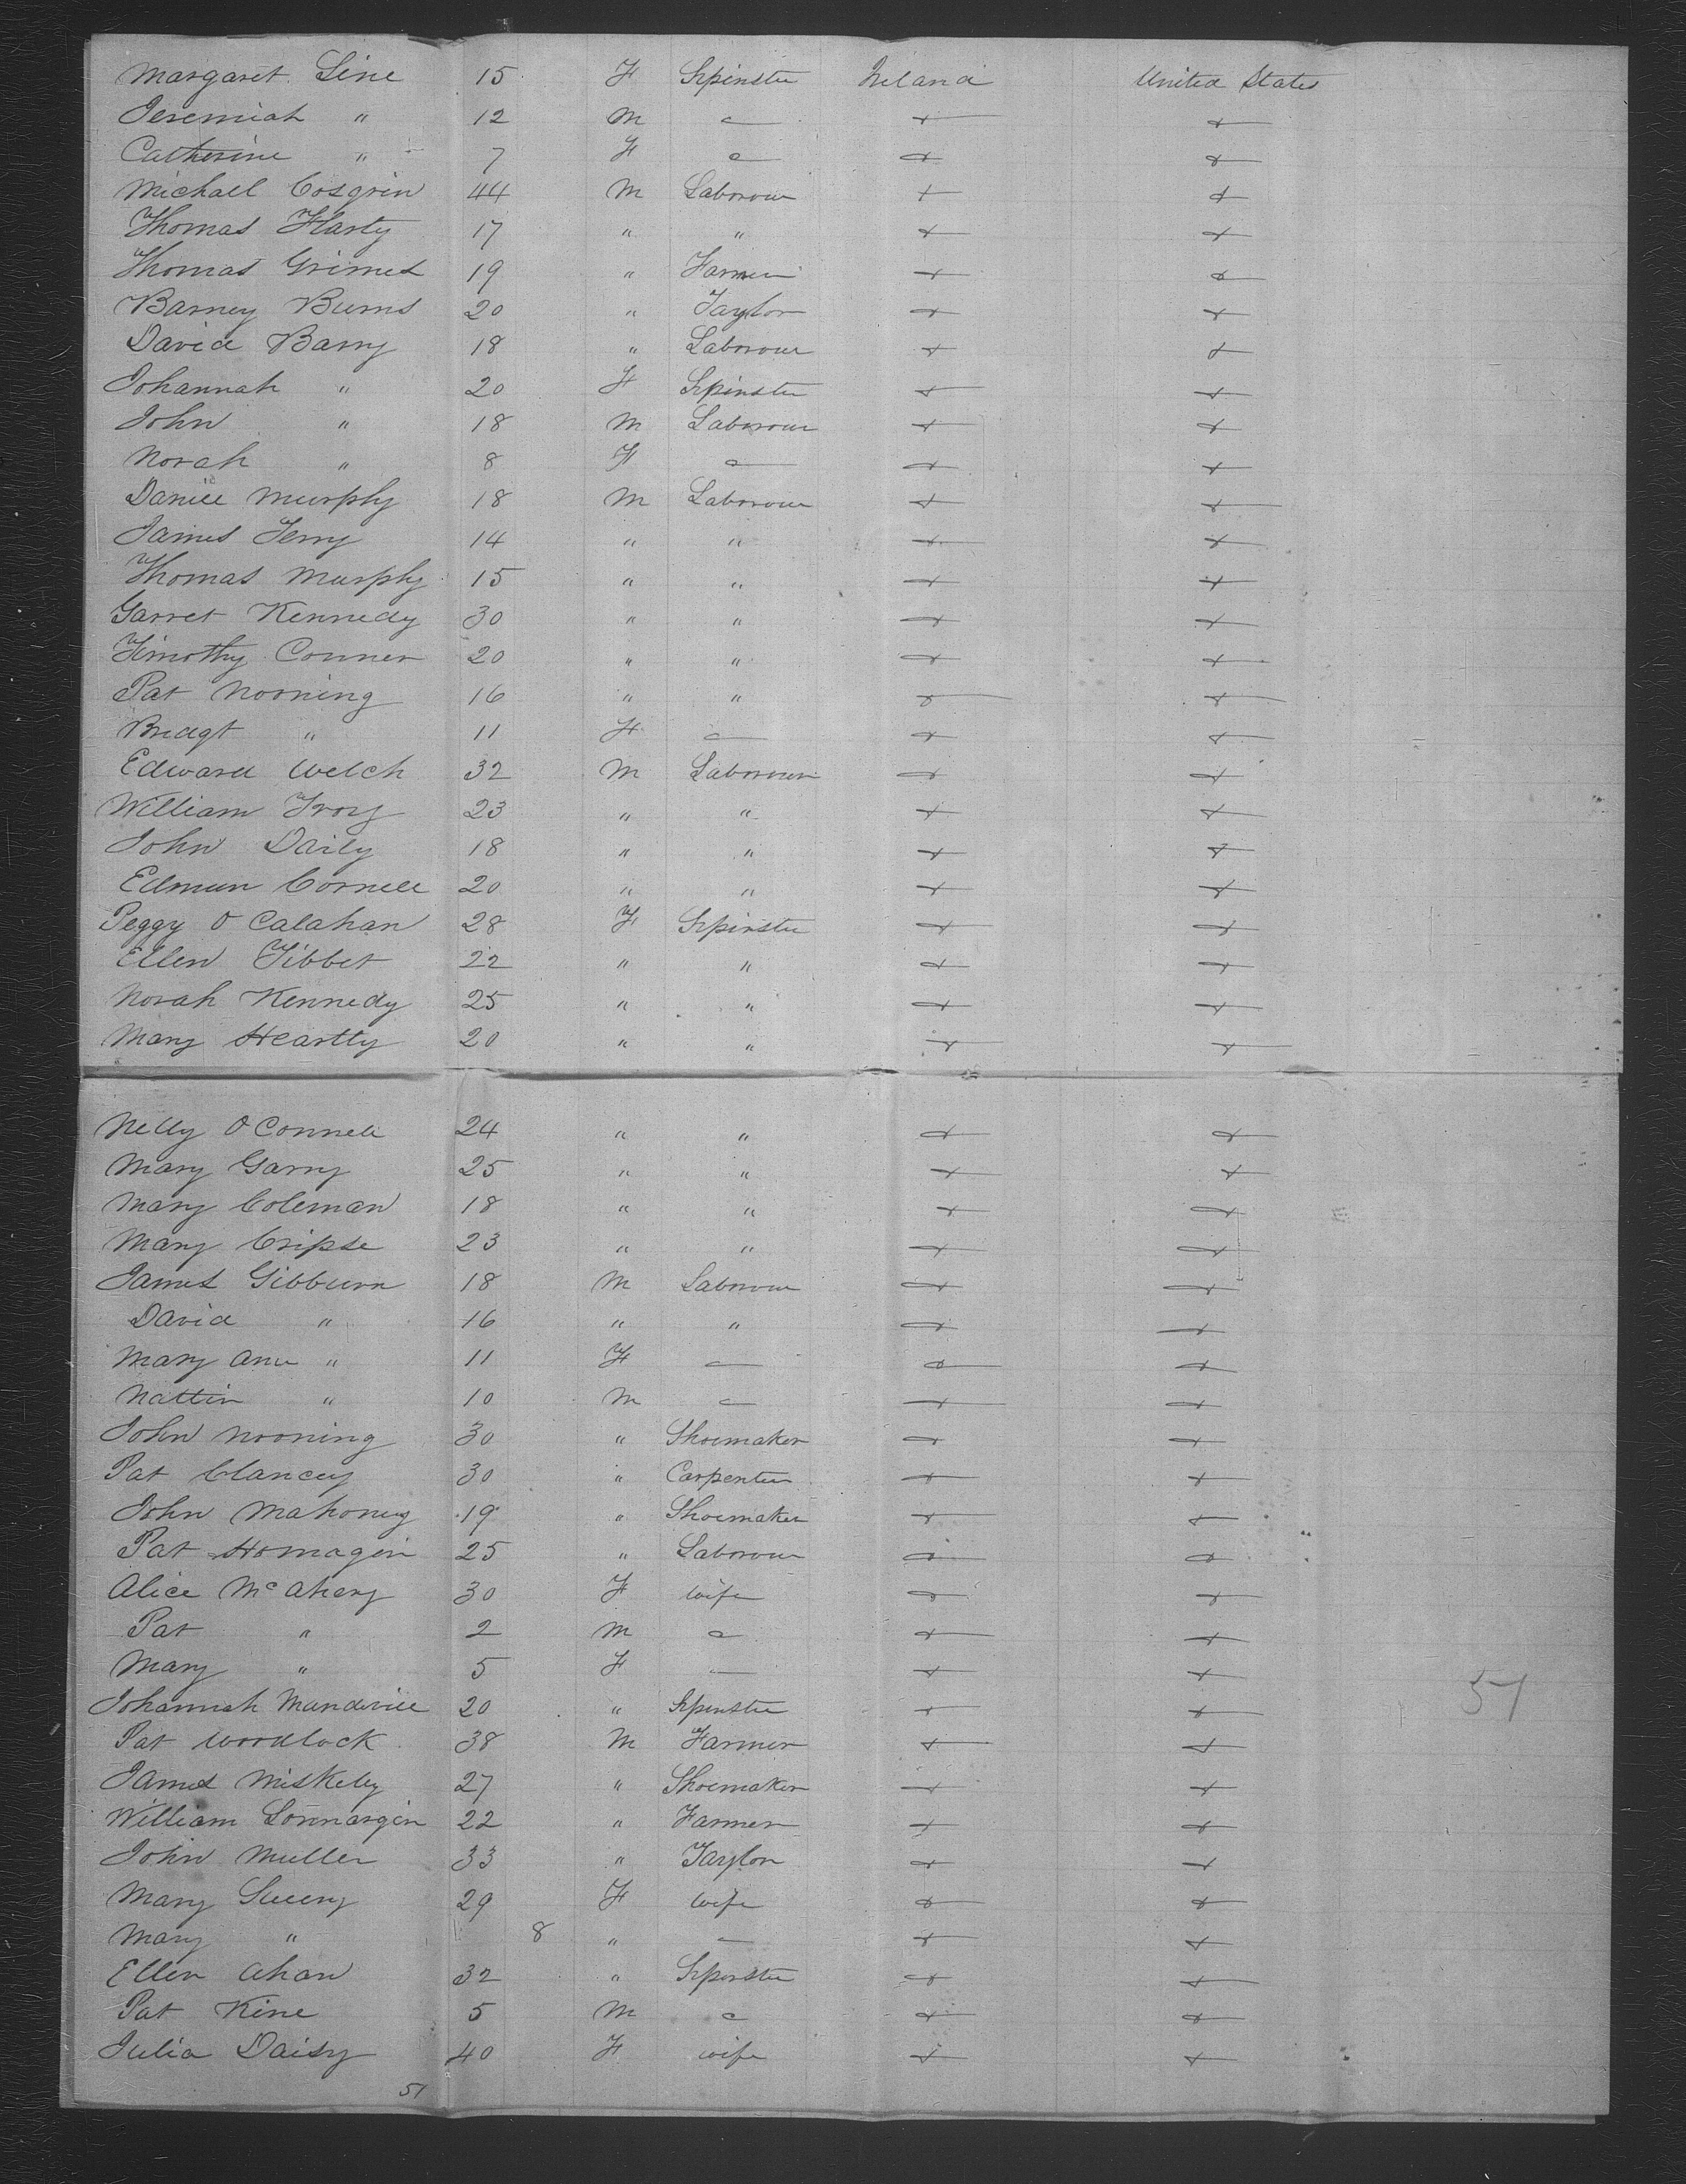 Margaret Line 15 F Spinster Ireland United States
Jeremiah " 12 M
Catherine " 7 F
Michael Cosgrin 44 M Laborour
Thomas Harty 17 " "
Thomas Grimes 19 " Farmer
Barney Burns 20 " Taylor
David Barry 18 " Laborour
Johannah " 20 F Spinster
John " 18 M Laborour
Norah " 8 F
Daniel Murphy 18 M Laborour
James Terry 14 " "
Thomas Murphy 15 " "
Garret Kennedy 30 " "
Timothy Conner 20 " "
Pat Nooning 16 " "
Bridgt " 11 F
Edward Welch 32 M Laborour
William Ivory 23 " "
John Daily 18 " "
Edmun Cornell 20 " "
Peggy O Calahan 28 F Spinster
Ellen Tibbet 22 " "
Norah Kennedy 25 " "
Mary Heartty 20 " "
Nelly O Connell 24 " "
Mary Garry 25 " "
Mary Coleman 18 " "
Mary Cripse 23 " "
James Gibburn 18 M Laborour
David " 16 " "
Mary Ann " 11 F
Nattin " 10 M
John Nooning 30 " Shoemaker
Pat Clancey 30 " Carpenter
John Mahoney 19 " Shoemaker
Pat Homagin 25 " Laborour
Alice McAhery 30 F Wife
Pat " 2 M
Mary " 5 F
Johannah Mandevill 20 " Spinster
Pat Woodlock 38 M Farmer
James Miskely 27 " Shoemaker
William Lonnargin 22 " Farmer
John Muller 33 " Taylor
Mary Sweeny 29 F Wife
Mary " 8 "
Ellen Ahan 32 " Spinster
Pat Kine 5 M
Julia Daisy 40 F Wife
51
51